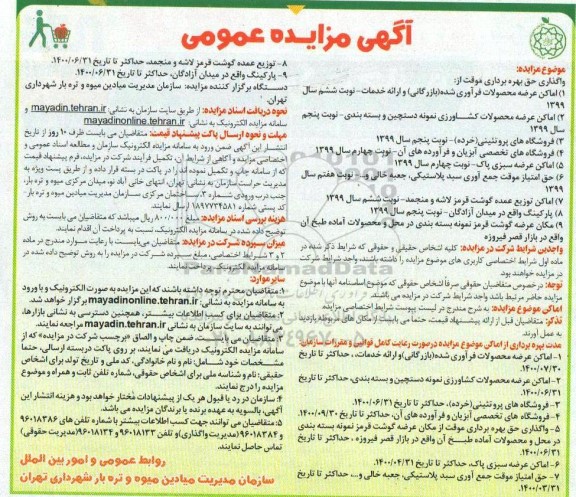 آگهی مزایده عمومی
موضوع مزایده:
واگذاری حق بهره برداری موقت از:
۱) اماکن عرضه محصولات فرآوری شده(بازرگانی) و ارائه خدمات- نوبت ششم سال
۱۳۹۹
۲) اماکن عرضه محصولات کشاورزی نمونه دستچین و بسته بندی- نوبت پنجم
سال ۱۳۹۹
۳) فروشگاه های پروتئینی(خرده)- نوبت پنجم سال ۱۳۹۹
۴) فروشگاه های تخصصی آبزیان و فرآورده های آن- نوبت چهارم سال ۱۳۹۹
۵) اماکن عرضه سبزی پاک- نوبت چهارم سال ۱۳۹۹
۶) حق امتیاز موقت جمع آوری سبد پلاستیکی، جعبه خالی و... نوبت هفتم سال
۱۳۹۹
۷) اماکن توزیع عمده گوشت قرمز لاشه و منجمد- نوبت ششم سال ۱۳۹۹
۸) پارکینگ واقع در میدان آزادگان- نوبت پنجم سال ۱۳۹۹
۹) مکان عرضه گوشت قرمز نمونه بسته بندی در محل و محصولات آماده طبخ آن
واقع در بازار قصر فیروزه
واجدین شرایط شرکت در مزایده: کلیه اشخاص حقیقی و حقوقی که شرایط ذکر شده در
ماده اول شرایط اختصاصی کاربری های موضوع مزایده را داشته باشند، واجد شرایط شرکت
در مزایده خواهند بود
توجه: در خصوص متقاضیان حقوقی صرفاً اشخاص حقوقی که موضوع اساسنامه آنها با موضوع
مزایده حاضر مرتبط باشد واجد شرایط شرکت در مزایده می باشند.
اماکن موضوع مزایده: به شرح مندرج در لیست پیوست شرایط اختصاصی مزایده
تذکر: متقاضیان قبل از ارائه پیشنهاد قیمت، حتما می بایست از مکان های مربوطه بازدید
به عمل آورند
مدت بهره برداری از اماکن موضوع مزایده درصورت رعایت کامل قوانین و مقررات سازمان:
۱- اماکن عرضه محصولات فرآوری شده(بازرگانی)و ارائه خدمات، حداکثر تا تاریخ
۱۴۰۰/۰۷/۳۰
۲- اماکن عرضه محصولات کشاورزی نمونه دستچین و بسته بندی، حداکثر تا تاریخ
۱۴۰۰/۰۶/۳۱
۳- فروشگاه های پروتئینی(خرده)، حداکثر تا تاریخ ۱۴۰۰/۰۶/۳۱
۴- فروشگاه های تخصصی آبزیان و فرآورده های آن، حداکثر تا تاریخ ۱۴۰۰/۰۹/۳۰
۵- واگذاری حق بهره برداری موقت از مکان عرضه گوشت قرمز نمونه بسته بندی
در محل و محصولات آماده طبخ آن واقع در بازار قصر فیروزه، حداکثر تا تاریخ
۱۴۰۰/۰۶/۳۱
۶- اماکن عرضه سبزی پاک، حداکثر تا تاریخ ۱۴۰۰/۰۴/۳۱
۷- حق امتیاز موقت جمع آوری سبد پلاستیکی، جعبه خالی و...، حداکثر تا تاریخ
۱۴۰۰/۰۳/۳۱
۸- توزیع عمده گوشت قرمز لاشه و منجمد، حداکثر تا تاریخ ۱۴۰۰/۰۶/۳۱.
۹- پارکینگ واقع در میدان آزادگان، حداکثر تا تاریخ ۱۴۰۰/۰۶/۳۱
دستگاه برگزار کننده مزایده: سازمان مدیریت میادین میوه و تره بار شهرداری
تهران.
نحوه دریافت اسناد مزایده: از طریق سایت سازمان به نشانی: mayadin.tehran.ir و
سامانه مزایده الکترونیک به نشانی: mayadinonline.tehran.ir
مهلت و نحوه ارسال پاکت پیشنهاد قیمت: متقاضیان می بایست ظرف ۱۰ روز از تاریخ
انتشار این آگهی ضمن ورود به سامانه مزایده الکترونیک سازمان و مطالعه اسناد عمومی و
اختصاصی مزایده و آگاهی از شرایط آن، تکمیل فرآیند شرکت در مزایده، فرم پیشنهاد قیمت
که از سامانه چاپ و تکمیل نموده اند را در پاکت در بسته قرار داده و از طریق پست ویژه به
مدیریت حراست سازمان به نشانی: تهران، انتهای خانی آباد نو، میدان مرکزی میوه و تره بار،
جنب درب ورودی شماره ۲، ساختمان مرکزی سازمان مدیریت میادین میوه و تره بار،
کد پستی شماره ۱۸۹۷۷۳۴۵۸۱ ارسال نمایند.
هزینه بررسی اسناد مزایده: مبلغ ۸۰۰/۰۰۰ ریال میباشد که متقاضیان می بایست به روش
توضیح داده شده در سامانه مزایده الکترونیک، نسبت به پرداخت آن اقدام نمایند.
میزان سپرده شرکت در مزایده: متقاضیان می‌بایست با رعایت موارد مندرج در ماده
۲ و ۳ شرایط اختصاصی، مبلغ سپرده شرکت در مزایده را به روش توضیح داده شده در
سامانه مزایده الکترونیک پرداخت نمایند.
سایر موارد:
۱: متقاضیان محترم توجه داشته باشند که این مزایده به صورت الکترونیک و با ورود
به سامانه مزایده به نشانی: mayadinonline.tehran.ir برگزار خواهد شد.
۲: متقاضیان برای کسب اطلاعات بیشتر، همچنین دسترسی به نشانی بازارها،
می توانند به سایت سازمان به نشانی mayadin.tehran.ir مراجعه نمایند.
۳: متقاضیان می بایست، ضمن چاپ و الصاق «برچسب شرکت در مزایده» که از
سامانه مزایده الکترونیک دریافت می نمایند، بر روی پاکت دربسته ارسالی، حتما
مشخصات خود شامل: نام و نام خانوادگی، کد ملی و تاریخ تولد برای اشخاص
حقیقی؛ نام و شناسه ملی برای اشخاص حقوقی، شماره تلفن ثابت و همراه و موضوع
مزایده را درج نمایند.
۴: سازمان در رد یا قبول هر یک از پیشنهادات مختار خواهد بود و هزینه انتشار این
آگهی، بالسویه به عهده برنده یا برندگان مزایده می باشد.
۵: متقاضیان می توانند جهت کسب اطلاعات بیشتر با شماره تلفن های ۹۶۰۱۸۳۸۶
و ۹۶۰۱۸۳۸۴ (مدیریت واگذاری) و تلفن ۹۶۰۱۸۱۳۳ و ۹۶۰۱۸۱۳۴(مدیریت حقوقی)
تماس حاصل نمایند.
روابط عمومی و امور بین الملل
سازمان مدیریت میادین میوه و تره بار شهرداری تهران